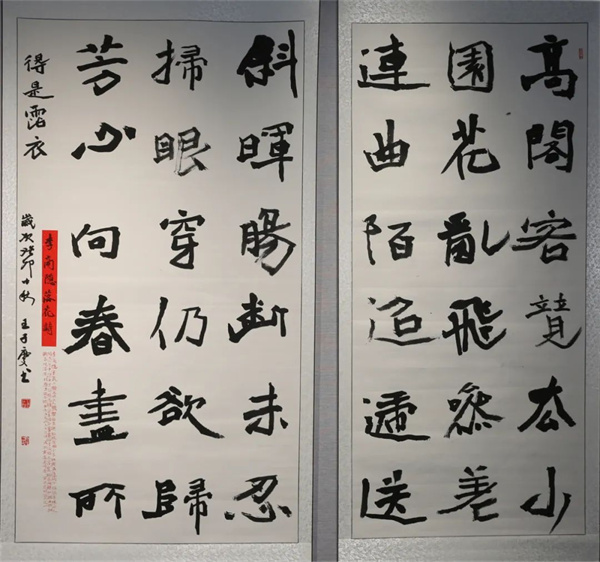 高閣客竟去小
園花亂飛參差
連曲陌迢遞送
斜暉腸斷未忍
掃眼穿仍欲歸
芳心向春盡所
得是霑衣
歲次癸卯 王子
李商隱落花詩